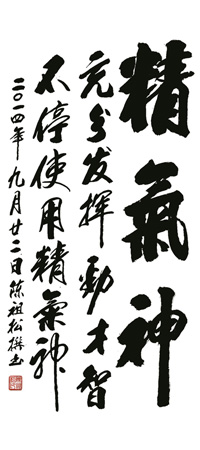 精氣神
充分发挥勁才智
不停使用精氣神
二〇一四年九月廿二日陈祖松撰书